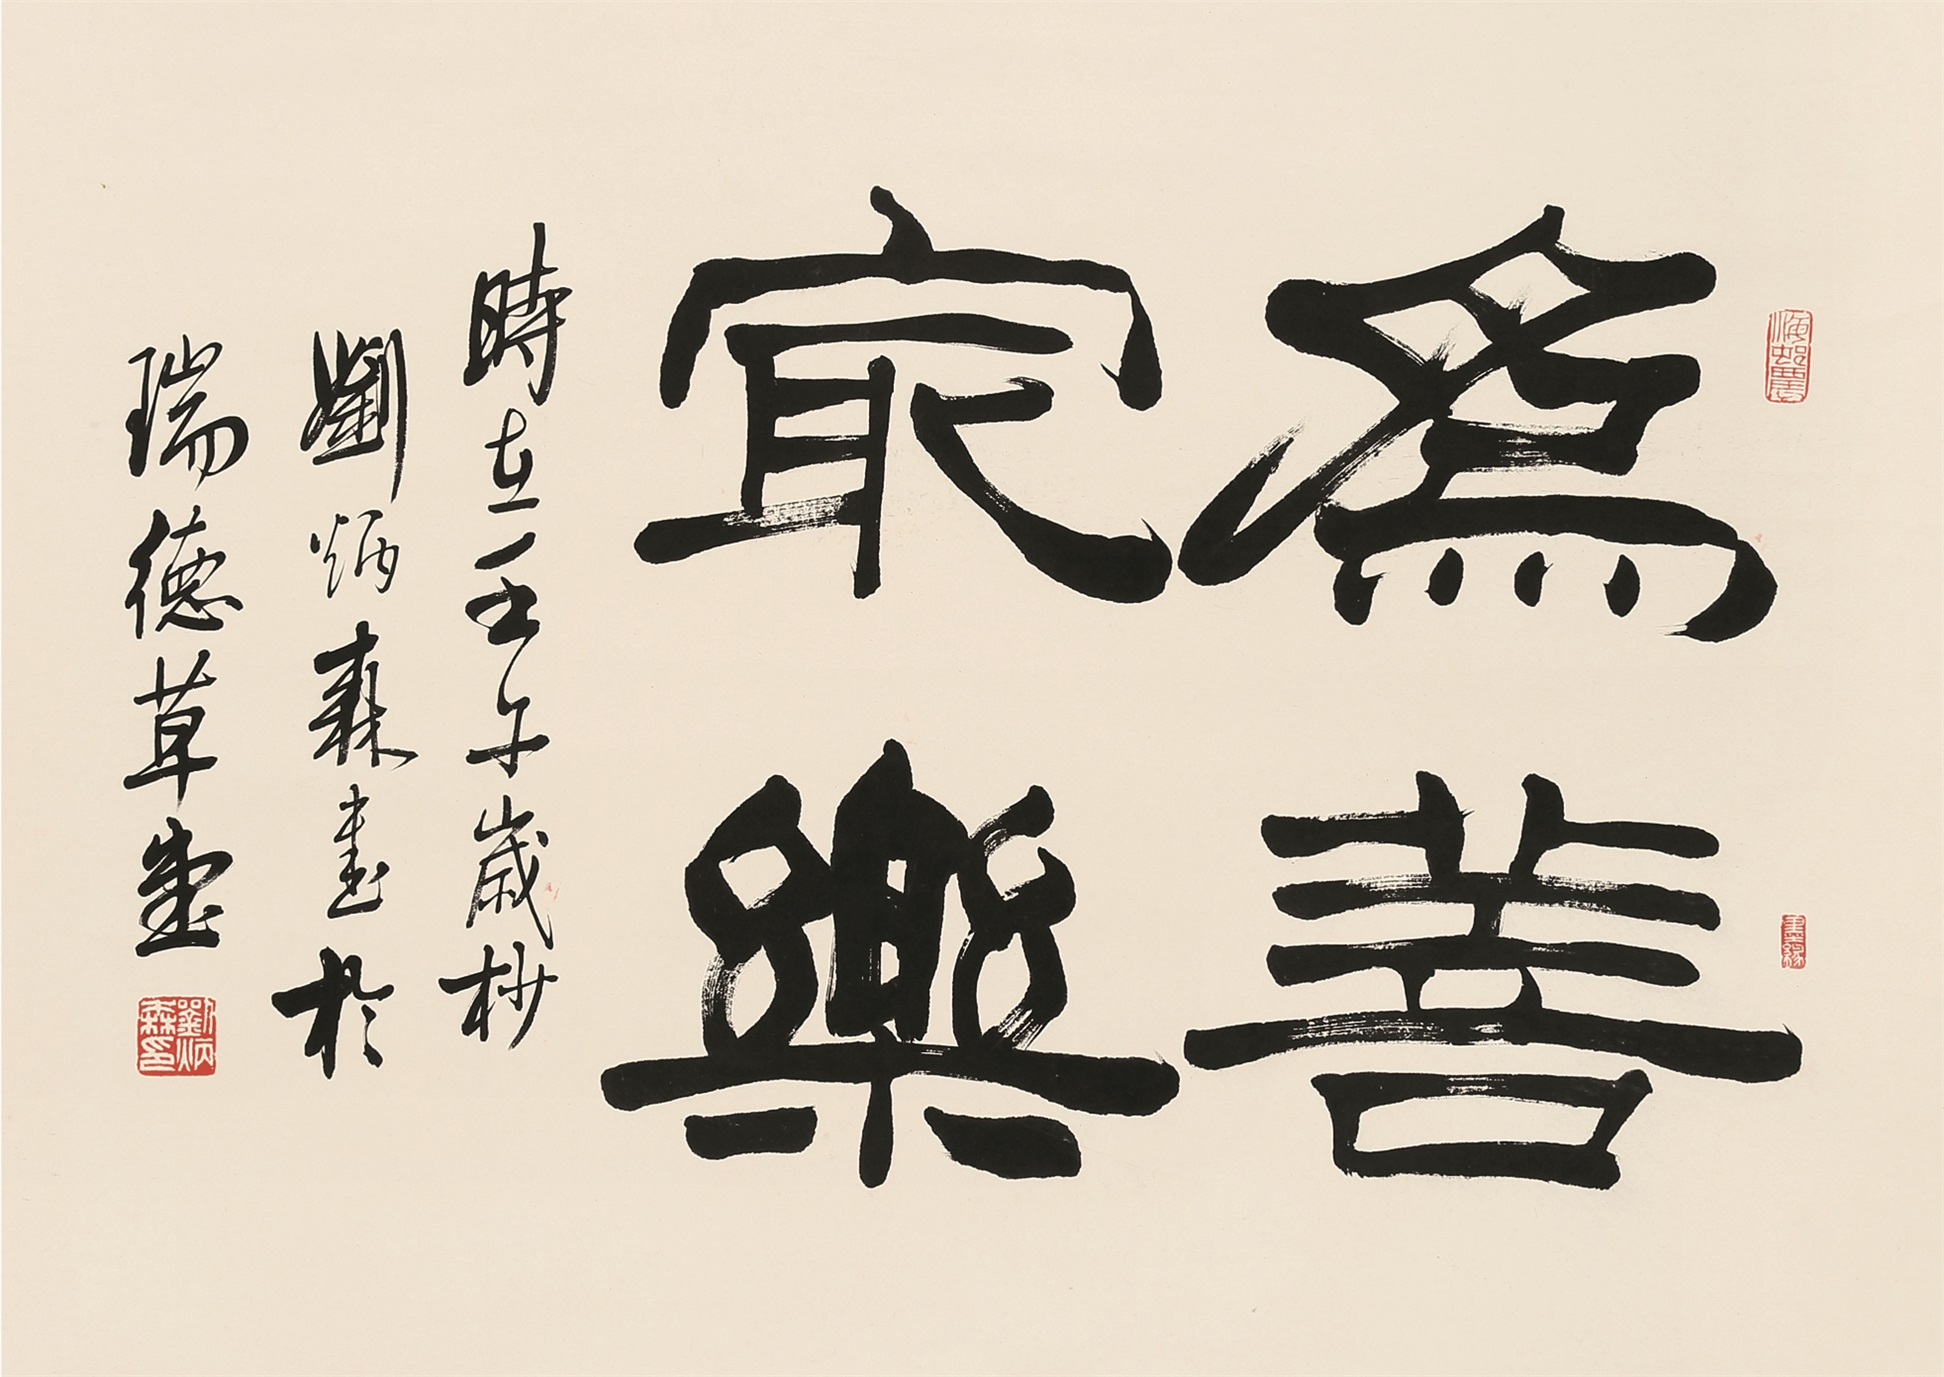 為善
冣樂
時在壬午歲杪
劉炳森書於
瑞德草堂
劉炳森印